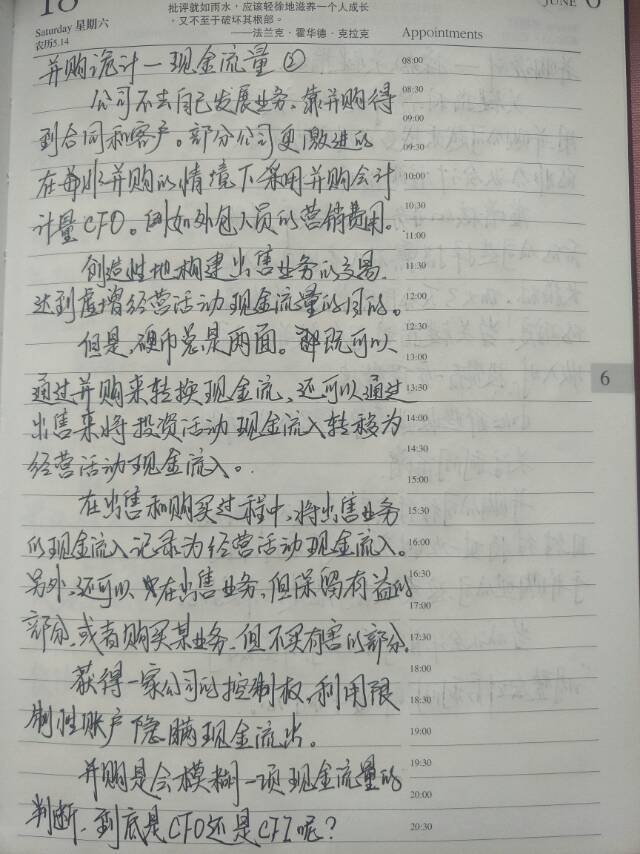 18
JUNE 6
Saturday 星期六
农历5.14
批评就如雨水，应该轻徐地滋养一个人成长
，又不至于破坏其根部。
——法兰克·霍华德·克拉克
Appointments
并购诡计—现金流量②
公司不去自己发展业务、靠并购得
到合同和客户。部分公司更激进的
在非并购的情境下采用并购会计
计量CFO。例如外包人员的营销费用。
创造性地构建出售业务的交易
达到虚增经营活动现金流量的目的。
但是，硬币总是两面。既可以
通过并购来转换现金流、还可以通过
出售来将投资活动现金流入转移为
经营活动现金流入。
在出售和购买过程中，将出售业务
的现金流入记录为经营活动现金流入。
另外，还可以在出售业务，但保留有益的
部分，或者购买某业务，但不买有害的部分。
获得一家公司的控制权，利用限
制性账户隐瞒现金流出。
并购是会模糊一项现金流量的
判断、到底是CFO还是CFI呢？
08:00
08:30
09:00
09:30
10:00
10:30
11:00
11:30
12:00
12:30
13:00
13:30
14:00
14:30
15:00
15:30
16:00
16:30
17:00
17:30
18:00
18:30
19:00
19:30
20:00
20:30
6